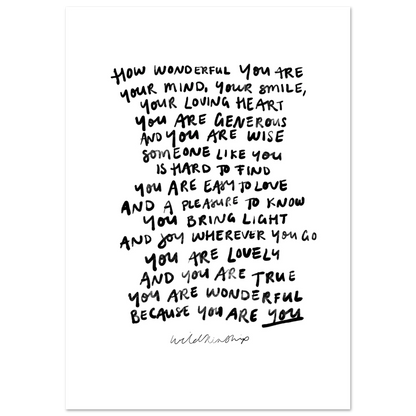 HOW WONDERFUL YOU ARE
YOUR MIND, YOUR SMILE,
YOUR LOVING HEART
YOU ARE GENEROUS
AND YOU ARE WISE
SOMEONE LIKE YOU
IS HARD TO FIND
YOU ARE EASY TO LOVE
AND A PLEASURE TO KNOW
YOU BRING LIGHT
AND JOY WHEREVER YOU GO
YOU ARE LOVELY
AND YOU ARE TRUE
YOU ARE WONDERFUL
BECAUSE YOU ARE YOU
wildkinship